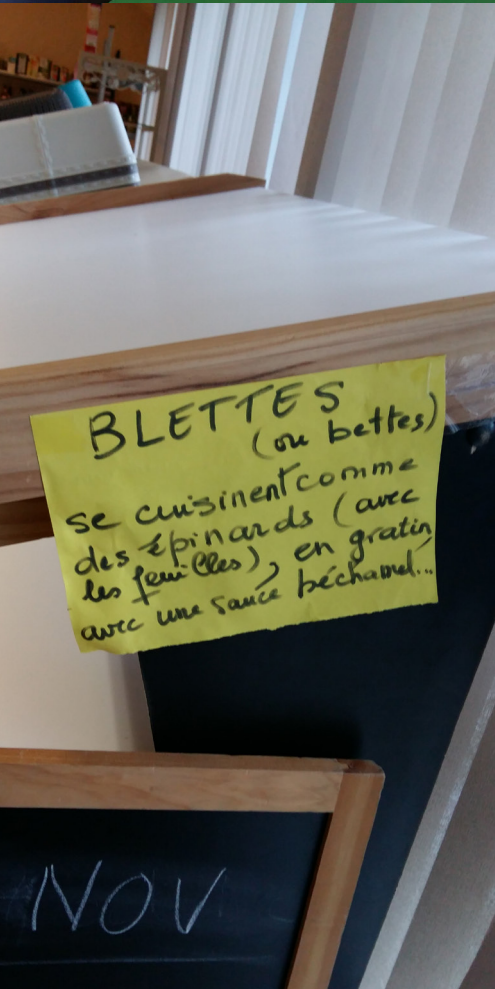 BLETTES
(ou bettes)
se cuisinent comme
des épinards (avec
les feuilles), en gratin
avec une sauce béchamel...
NOV